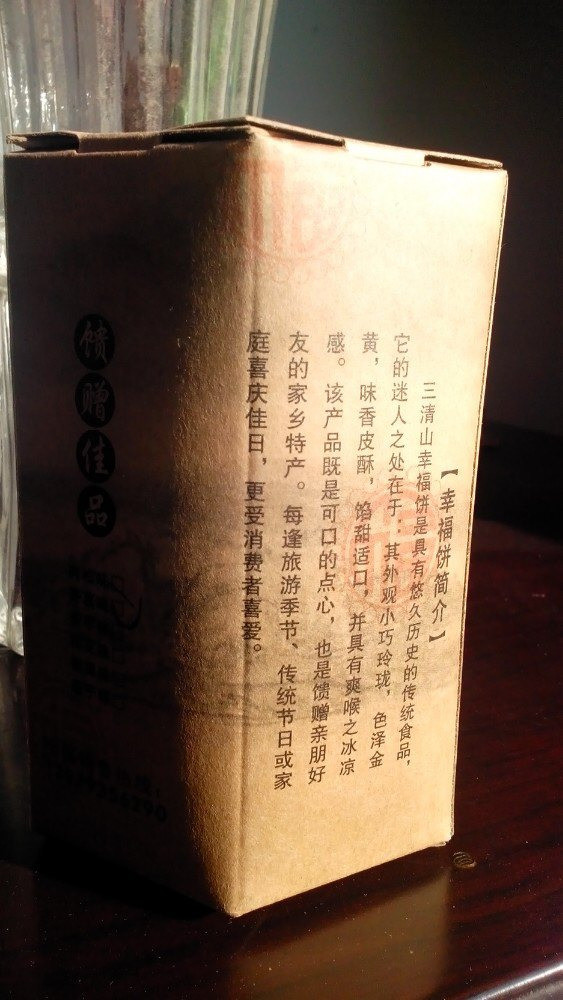 【幸福饼简介】
三清山幸福饼是具有悠久历史的传统食品，
它的迷人之处在于：其外观小巧玲珑，色泽金
黄，味香皮酥，馅甜适口，并具有爽喉之冰凉
感。该产品既是可口的点心，也是馈赠亲朋好
友的家乡特产。每逢旅游季节、传统节日或家
庭喜庆佳日，更受消费者喜爱。
馈赠佳品